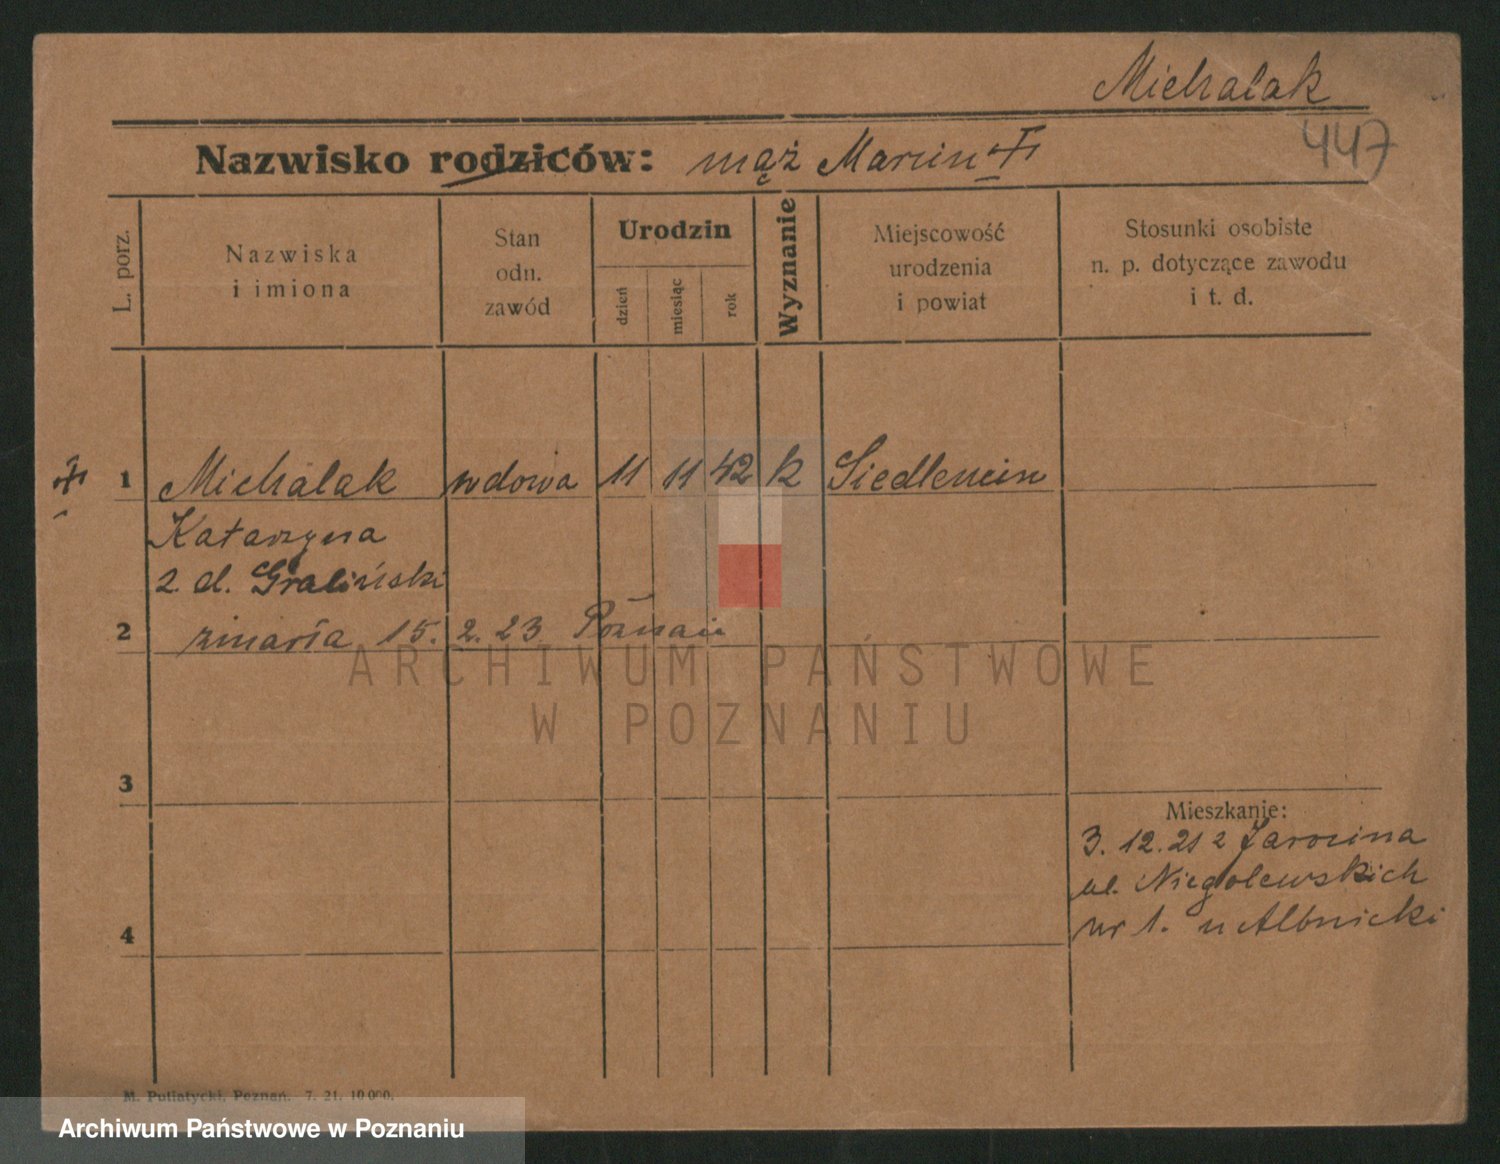 Michalak
447
Nazwisko rodziców: mąż Marcin †
L. porz.
Nazwiska
i imiona
Stan
odn.
zawód
Urodzin
dzień
miesiąc
rok
Wyznanie
Miejscowość
urodzenia
i powiat
Stosunki osobiste
n. p. dotyczące zawodu
i t. d.
† 1 Michalak wdowa 11 11 42 k Siedlemin
Katarzyna
z d. Graliński
2 zmarła 15. 2. 23 Poznań
ARCHIWUM PAŃSTWOWE
W POZNANIU
3
Mieszkanie:
3. 12. 21 z Jarocina
ul. Niegolewskich
4 nr 1. u Albnicki
M. Putiatycki, Poznań. 7. 21. 10 000.
Archiwum Państwowe w Poznaniu